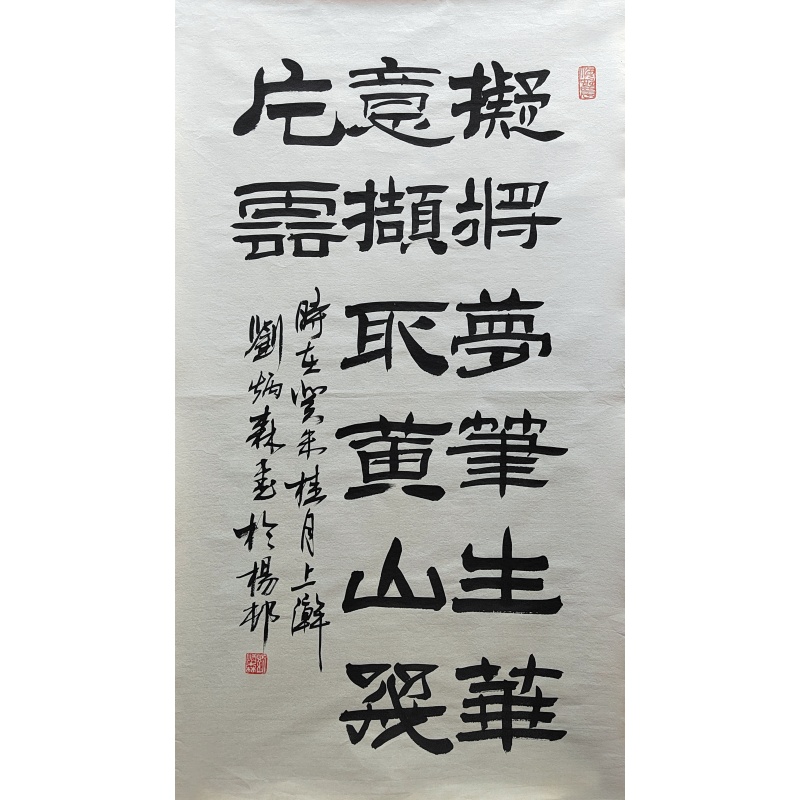 擬將夢筆生華
意擷取黃山幾
片雲
時在癸未桂月上澣
劉炳森書於楊邨